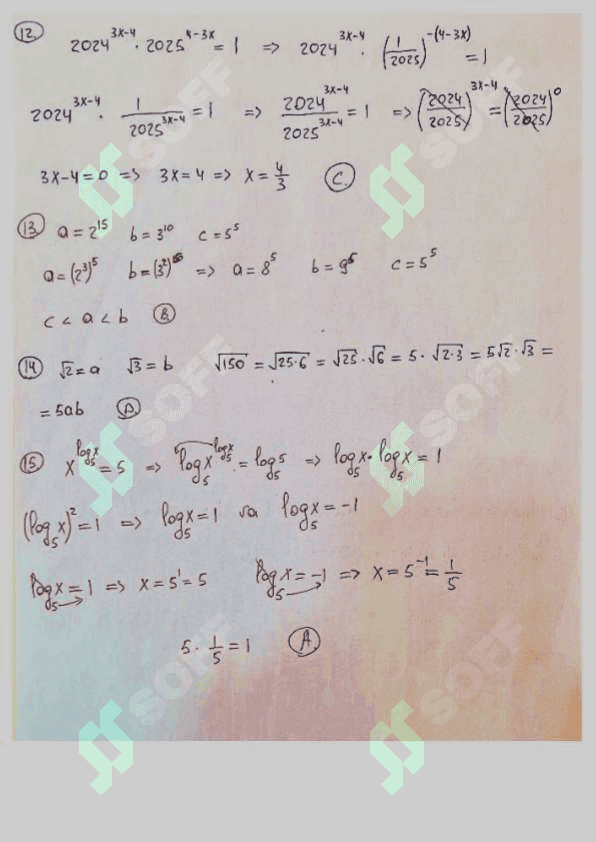 12. 2024^{3x-4} · 2025^{4-3x} = 1 => 2024^{3x-4} · (1/2025)^{-(4-3x)} = 1
2024^{3x-4} · 1/2025^{3x-4} = 1 => 2024^{3x-4}/2025^{3x-4} = 1 => (2024/2025)^{3x-4} = (2024/2025)^0
3x-4=0 => 3x=4 => x=4/3 C.
13. a=2^{15} b=3^{10} c=5^5
a=(2^3)^5 b=(3^2)^5 => a=8^5 b=9^5 c=5^5
c < a < b B.
14 √2=a √3=b √150 = √25·6 = √25·√6 = 5·√2·3 = 5√2·√3 =
= 5ab A.
15 x^{log_5 x} = 5 => log_5 x^{log_5 x} = log_5 5 => log_5 x · log_5 x = 1
(log_5 x)^2 = 1 => log_5 x = 1 va log_5 x = -1
log_5 x = 1 => x = 5^1 = 5 log_5 x = -1 => x = 5^{-1} = 1/5
5 · 1/5 = 1 A.
SOFF
SOFF
SOFF
SOFF
SOFF
SOFF